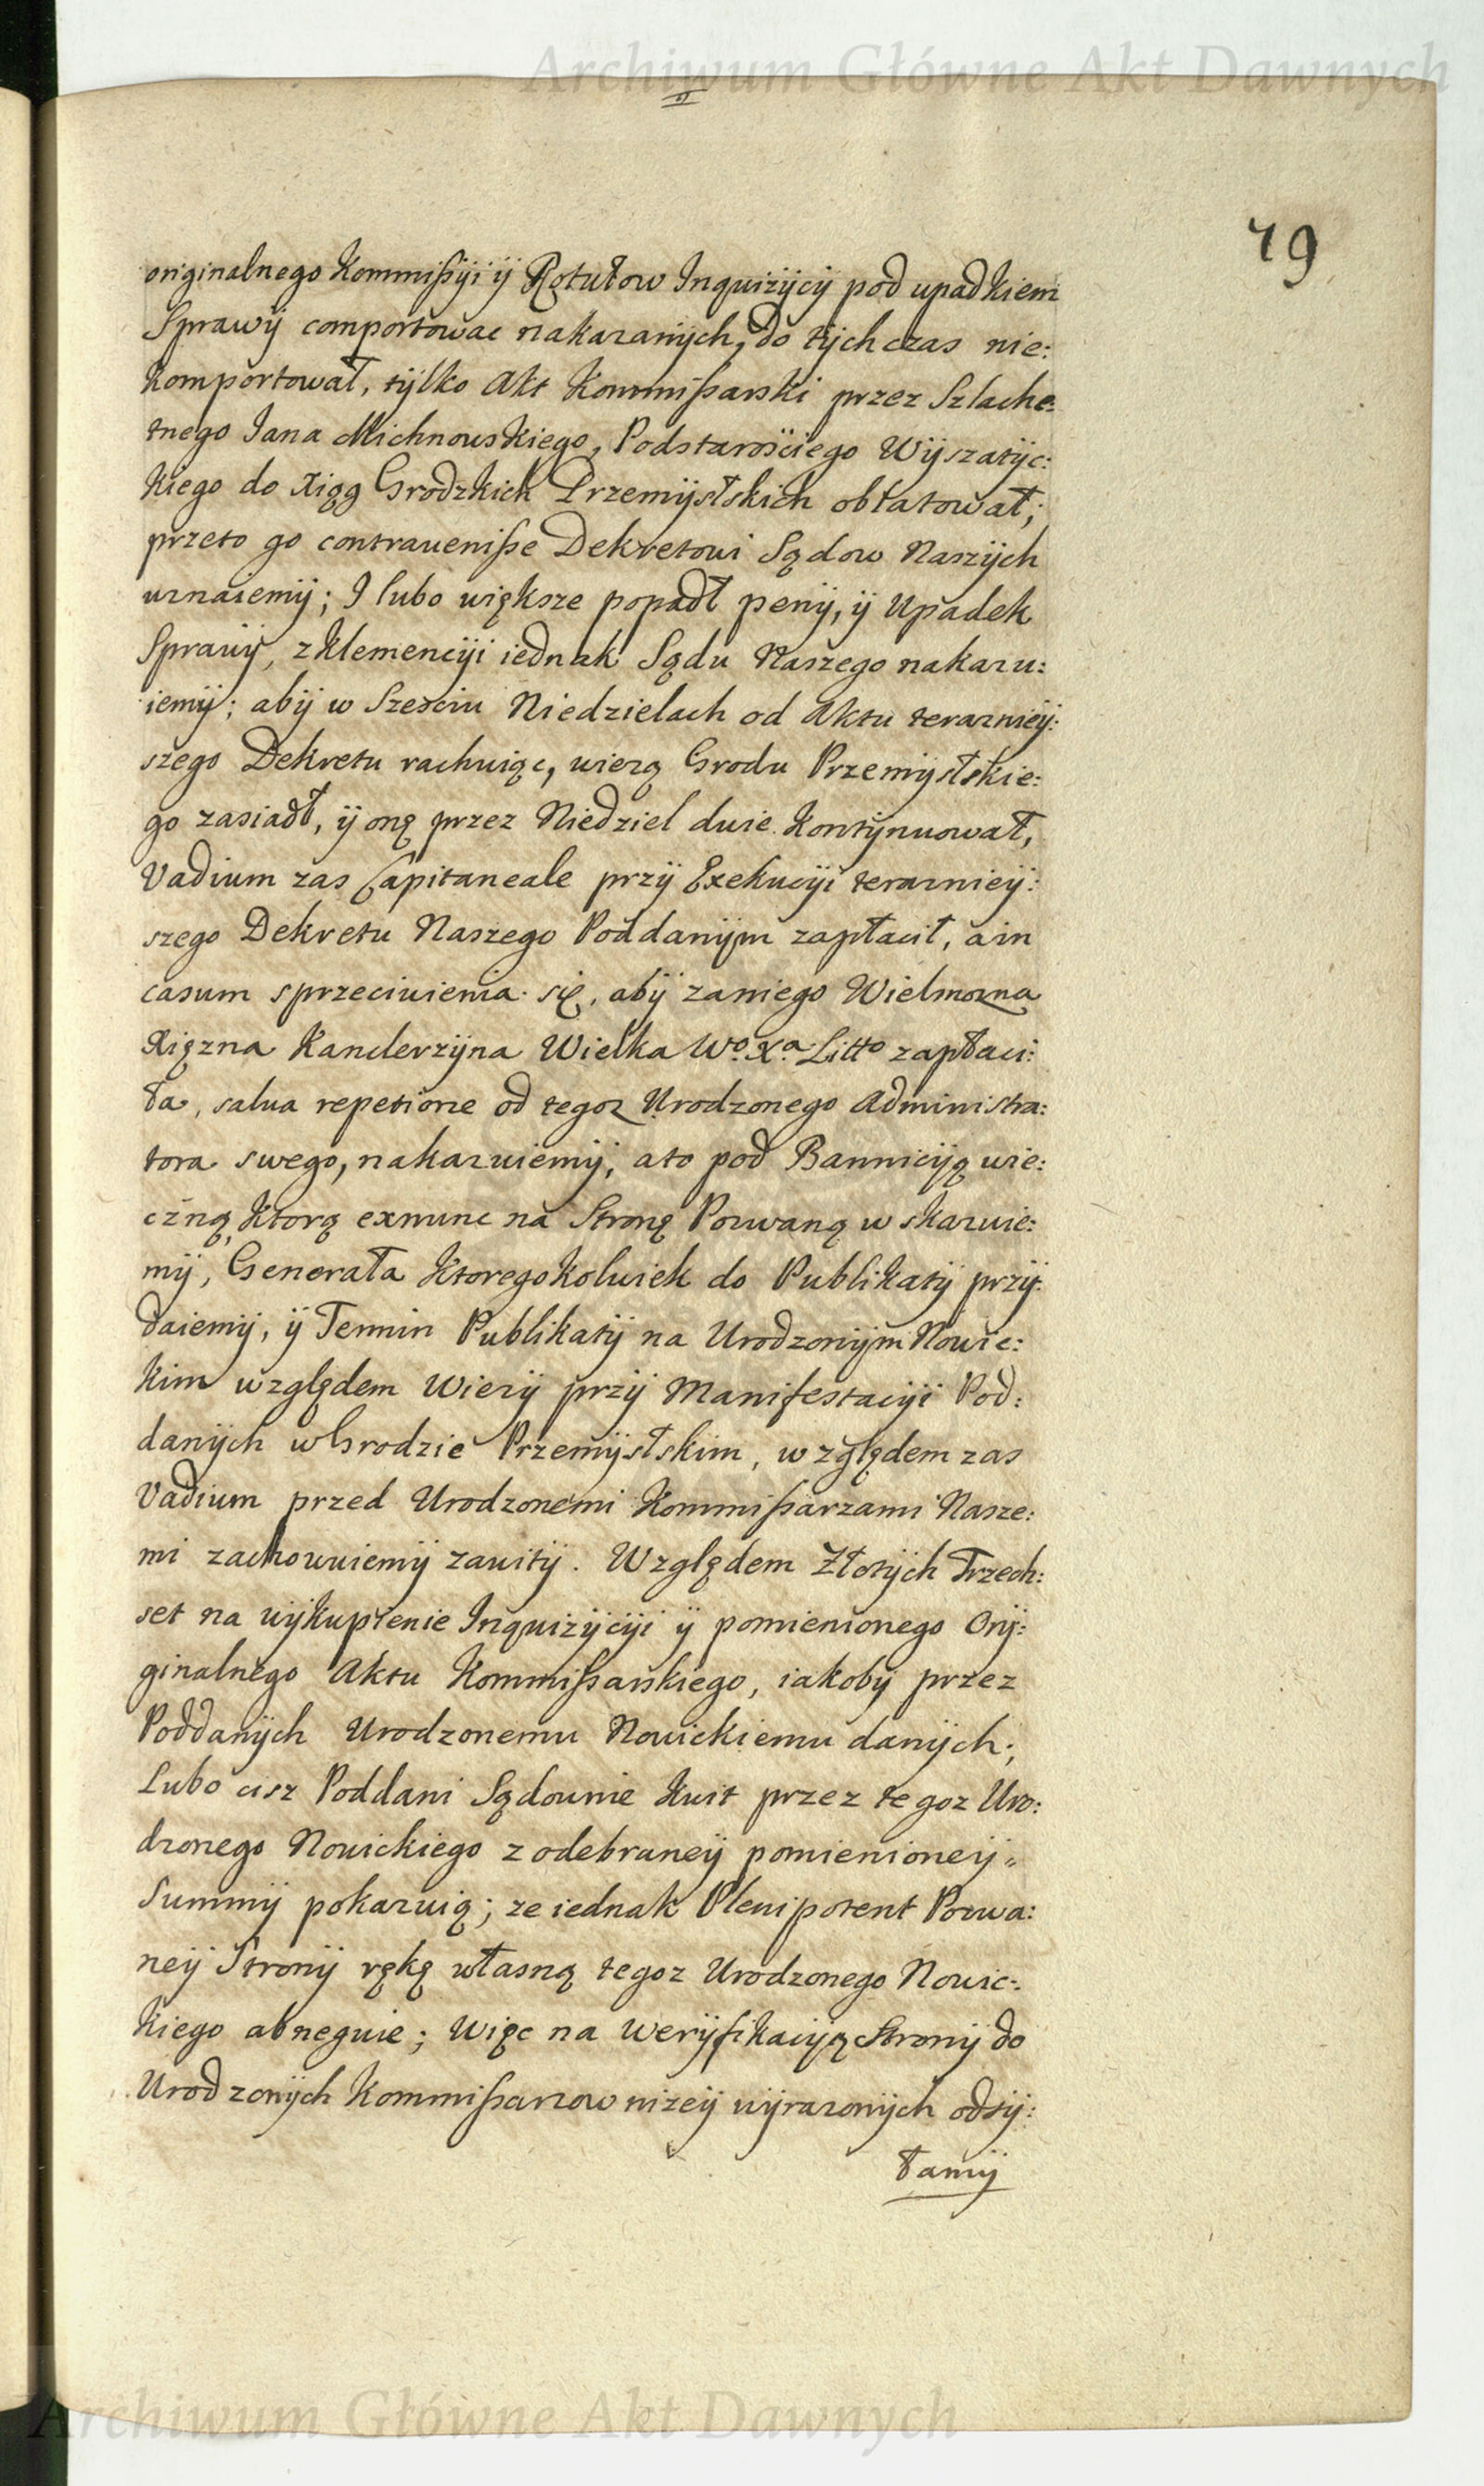 Archiwum Główne Akt Dawnych
79
originalnego Kommißyi ÿ Rotułow Inquizÿcÿ pod upadkiem
Sprawÿ comportowac nakazanÿch, do tÿch czas nie:
komportował, tÿlko Akt Kommißarski przez Szlache:
tnego Jana Michnowskiego, Podstarosciego Wÿszatÿc:
kiego do Xiąg Grodzkich Przemÿslskich obłatował;
przeto go contraveniße Dekretowi Sądow Naszÿch
uznaiemÿ; I lubo większe popadł penÿ, ÿ Upadek
Sprawÿ, z Klemencÿi iednak Sądu Naszego nakazu:
iemÿ; abÿ w Szesciu Niedzielach od Aktu teraznieÿ:
szego Dekretu rachuiąc, wiezą Grodu Przemÿslskie:
go zasiadł, ÿ onę przez Niedziel dwie Kontÿnuował,
Vadium zas Capitaneale przÿ Exekucÿi teraznieÿ:
szego Dekretu Naszego Poddanÿm zapłacił, a in
casum sprzeciwienia się, abÿ za niego Wielmozna
Xięzna Kanclerzÿna Wielka Wº Xª Littº zapłaci:
ła, salva repetione od tegoz Urodzonego Administra:
tora swego, nakazuiemÿ, a to pod Bannicÿą wie:
czną, Ktorą exnunc na Stronę Pozwaną wskazuie:
mÿ, Generała Ktoregokolwiek do Publikatÿ przÿ:
daiemÿ, ÿ Termin Publikatÿ na Urodzonÿm Nowic:
kim względem Wiezÿ przÿ Manifestacÿi Pod:
danÿch w Grodzie Przemÿslskim, względem zas
Vadium przed Urodzonemi Kommißarzami Nasze:
mi zachowuiemÿ zawitÿ. Względem Złotÿch Trzech:
set na wÿkupienie Inquizÿcÿi ÿ pomienionego Orÿ:
ginalnego Aktu Kommißarskiego, iakobÿ przez
Poddanÿch Urodzonemu Nowickiemu danÿch;
Lubo cisz Poddani Sądownie Kwit przez tegoz Uro:
dzonego Nowickiego z odebraneÿ pomienioneÿ
Summÿ pokazuią; ze iednak Plenipotent Pozwa:
neÿ Stronÿ rękę własną tegoz Urodzonego Nowic:
kiego abneguie; Więc na Werÿfikacÿą Stronÿ do
Urodzonÿch Kommißarzow nizeÿ wÿrazonÿch odsÿ:
łamÿ
Archiwum Główne Akt Dawnych